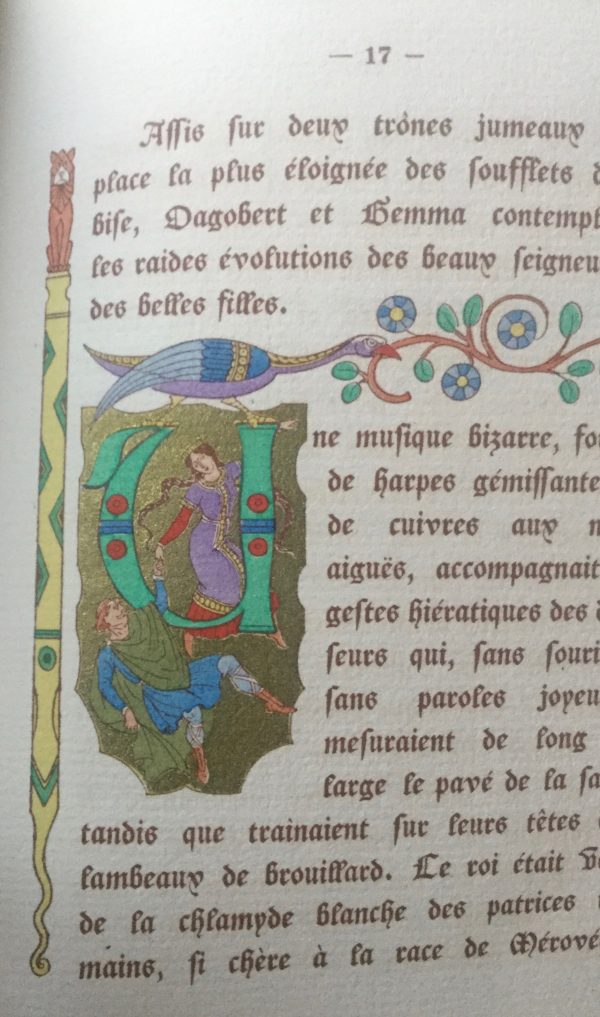 — 17 —
Aſſis ſur deux trônes jumeaux
place la plus éloignée des ſoufflets
biſe, Dagobert et Gemma
les raides évolutions des beaux
des belles filles.
Une muſique bizarre,
de harpes
de cuivres aux
aiguës, accompagnait
geſtes hiératiques des
ſeurs qui, ſans
ſans paroles
meſuraient de long
large le pavé de la
tandis que traînaient ſur leurs têtes
lambeaux de brouillard. Le roi était
de la chlamyde blanche des patrices
mains, ſi chère à la race de